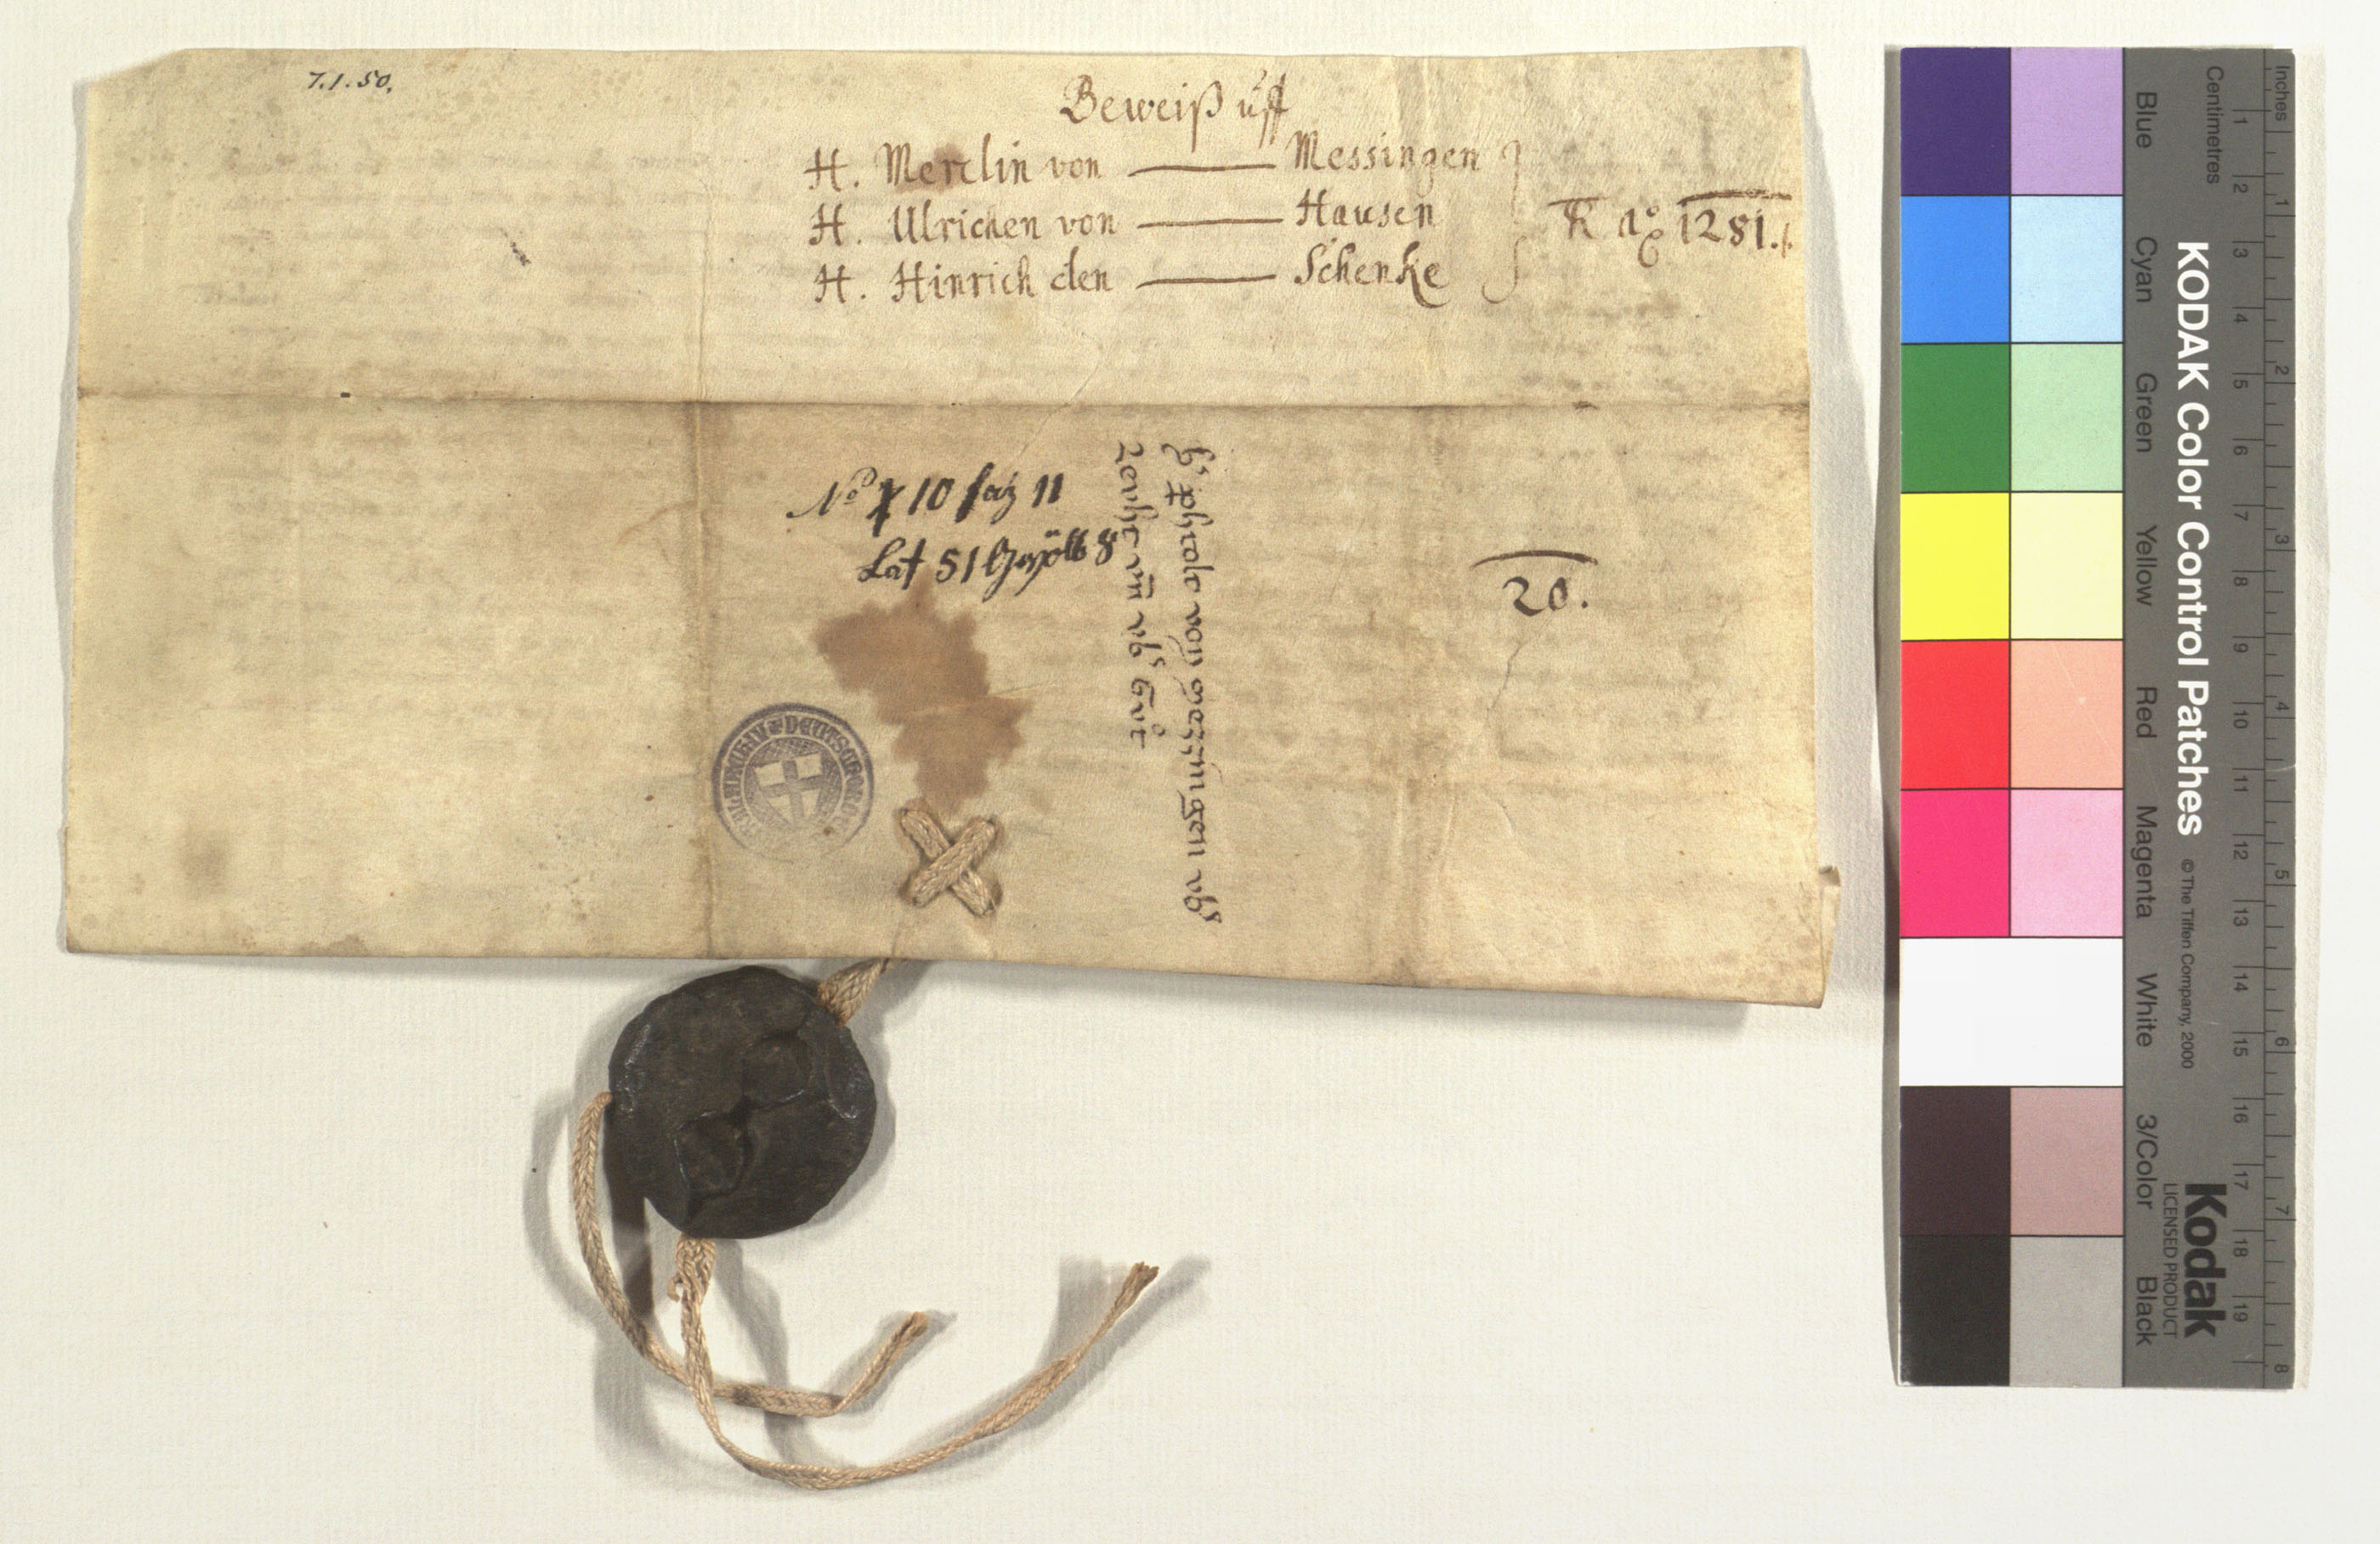 7.1.50.
Beweiß uff
H. Merclin von — Messingen
H. Ulrichen von — Hausen
H. Hinrich den — Schenke
K Ao 1281.
No 10 faz 11
Lat 51 8
von messingen vbs
vn vbs Gut
20.
DEUTSCHORD
KODAK Color Control Patches
© The Tiffen Company, 2000
Kodak
LICENSED PRODUCT
Blue
Cyan
Green
Yellow
Red
Magenta
White
3/Color
Black
Inches
1 2 3 4 5 6 7 8
Centimetres
1 2 3 4 5 6 7 8 9 10 11 12 13 14 15 16 17 18 19